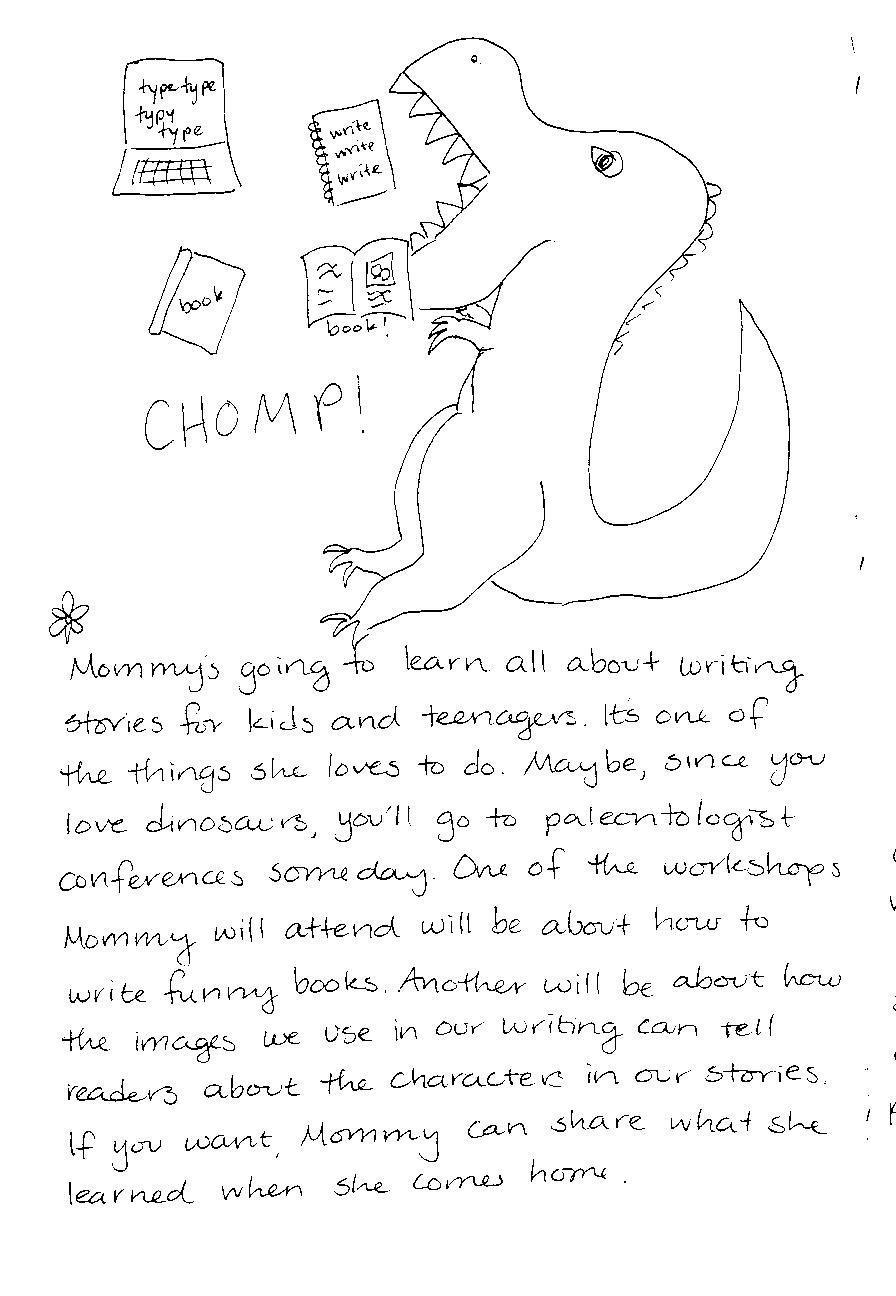 type type
typy
type
write
write
write
book
book!
CHOMP!
Mommy's going to learn all about writing
stories for kids and teenagers. It's one of
the things she loves to do. Maybe, since you
love dinosaurs, you'll go to paleontologist
conferences someday. One of the workshops
Mommy will attend will be about how to
write funny books. Another will be about how
the images we use in our writing can tell
readers about the characters in our stories.
If you want, Mommy can share what she
learned when she comes home.